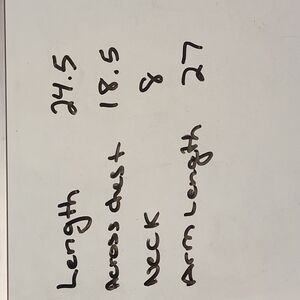 Length 24.5
Across chest 18.5
Neck 8
Arm Length 27